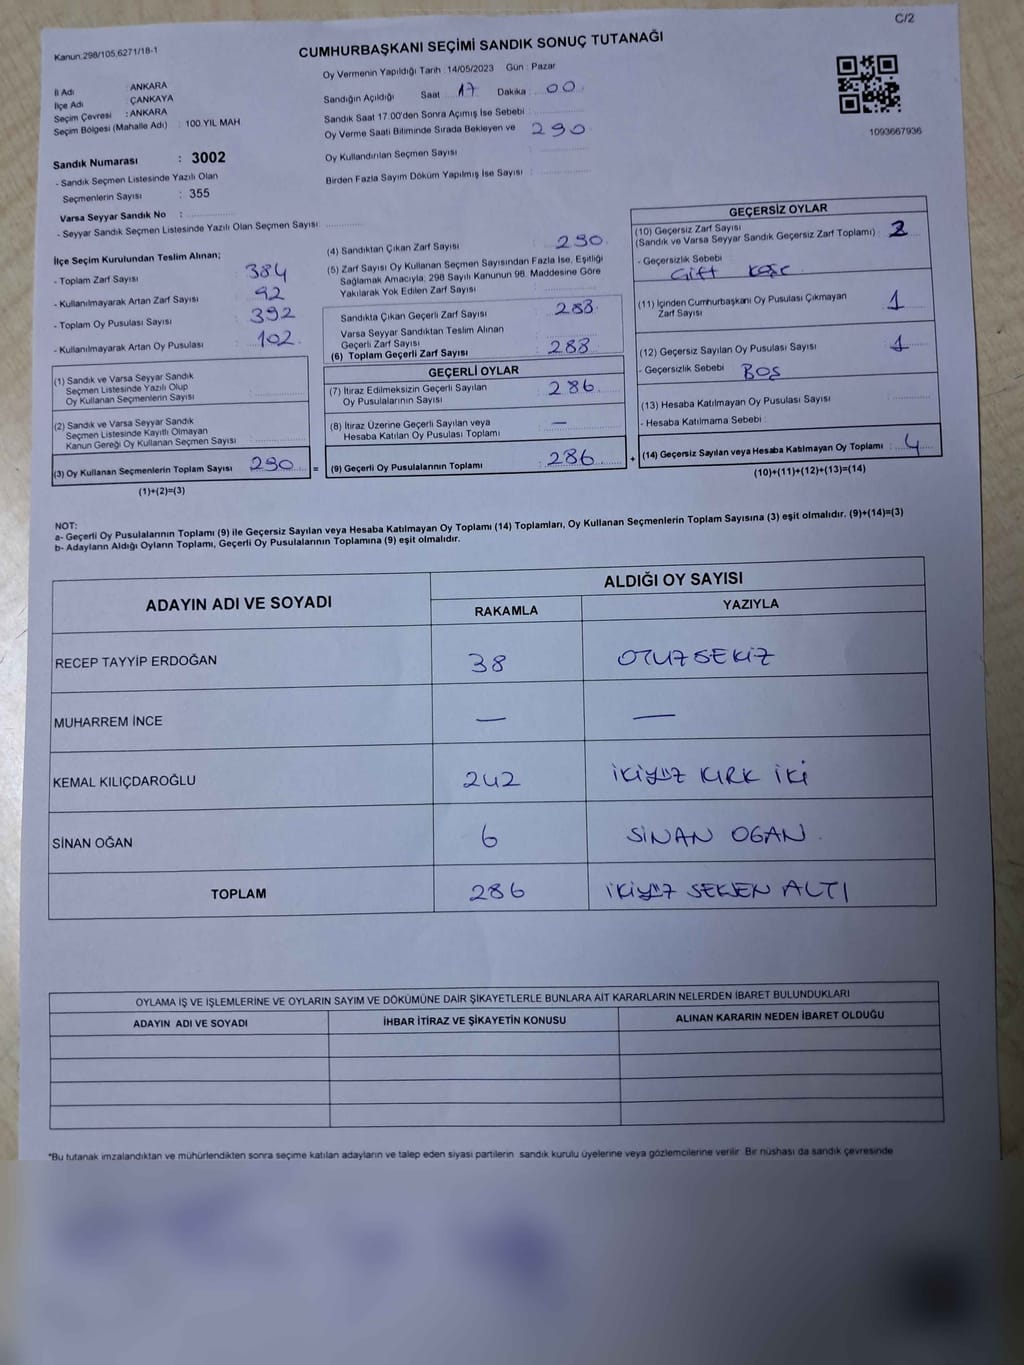 C/2
Kanun:298/105,6271/18-1
CUMHURBAŞKANI SEÇİMİ SANDIK SONUÇ TUTANAĞI
Oy Vermenin Yapıldığı Tarih : 14/05/2023 Gün : Pazar
İl Adı : ANKARA
İlçe Adı : ÇANKAYA
Seçim Çevresi : ANKARA
Seçim Bölgesi (Mahalle Adı) : 100.YIL MAH
Sandık Numarası : 3002
- Sandık Seçmen Listesinde Yazılı Olan
Seçmenlerin Sayısı : 355
Varsa Seyyar Sandık No :
- Seyyar Sandık Seçmen Listesinde Yazılı Olan Seçmen Sayısı :
Sandığın Açıldığı Saat 17 Dakika 00
Sandık Saat 17.00'den Sonra Açımış İse Sebebi :
Oy Verme Saati Bitiminde Sırada Bekleyen ve : 290
Oy Kullandırılan Seçmen Sayısı
Birden Fazla Sayım Döküm Yapılmış İse Sayısı :
1093667936
İlçe Seçim Kurulundan Teslim Alınan;
- Toplam Zarf Sayısı : 384
- Kullanılmayarak Artan Zarf Sayısı : 92
- Toplam Oy Pusulası Sayısı : 392
- Kullanılmayarak Artan Oy Pusulası : 102
(1) Sandık ve Varsa Seyyar Sandık
Seçmen Listesinde Yazılı Olup
Oy Kullanan Seçmenlerin Sayısı :
(2) Sandık ve Varsa Seyyar Sandık
Seçmen Listesinde Kayıtlı Olmayan
Kanun Gereği Oy Kullanan Seçmen Sayısı :
(3) Oy Kullanan Seçmenlerin Toplam Sayısı : 290 =
(1)+(2)=(3)
(4) Sandıktan Çıkan Zarf Sayısı : 290
(5) Zarf Sayısı Oy Kullanan Seçmen Sayısından Fazla İse, Eşitliği
Sağlamak Amacıyla; 298 Sayılı Kanunun 98. Maddesine Göre
Yakılarak Yok Edilen Zarf Sayısı :
Sandıkta Çıkan Geçerli Zarf Sayısı : 288
Varsa Seyyar Sandıktan Teslim Alınan
Geçerli Zarf Sayısı :
(6) Toplam Geçerli Zarf Sayısı : 288
GEÇERLİ OYLAR
(7) İtiraz Edilmeksizin Geçerli Sayılan
Oy Pusulalarının Sayısı : 286
(8) İtiraz Üzerine Geçerli Sayılan veya
Hesaba Katılan Oy Pusulası Toplamı : —
(9) Geçerli Oy Pusulalarının Toplamı : 286 +
GEÇERSİZ OYLAR
(10) Geçersiz Zarf Sayısı
(Sandık ve Varsa Seyyar Sandık Geçersiz Zarf Toplamı) : 2
- Geçersizlik Sebebi :
Çift kaşe
(11) İçinden Cumhurbaşkanı Oy Pusulası Çıkmayan
Zarf Sayısı : 1
(12) Geçersiz Sayılan Oy Pusulası Sayısı : 1
- Geçersizlik Sebebi : BOŞ
(13) Hesaba Katılmayan Oy Pusulası Sayısı :
- Hesaba Katılmama Sebebi :
(14) Geçersiz Sayılan veya Hesaba Katılmayan Oy Toplamı : 4
(10)+(11)+(12)+(13)=(14)
NOT:
a- Geçerli Oy Pusulalarının Toplamı (9) ile Geçersiz Sayılan veya Hesaba Katılmayan Oy Toplamı (14) Toplamları, Oy Kullanan Seçmenlerin Toplam Sayısına (3) eşit olmalıdır. (9)+(14)=(3)
b- Adayların Aldığı Oyların Toplamı, Geçerli Oy Pusulalarının Toplamına (9) eşit olmalıdır.
ADAYIN ADI VE SOYADI ALDIĞI OY SAYISI
RAKAMLA YAZIYLA
RECEP TAYYİP ERDOĞAN 38 OTUZSEKİZ
MUHARREM İNCE — —
KEMAL KILIÇDAROĞLU 242 İKİYÜZ KIRK İKİ
SİNAN OĞAN 6 SİNAN OGAN
TOPLAM 286 İKİYÜZ SEKSEN ALTI
OYLAMA İŞ VE İŞLEMLERİNE VE OYLARIN SAYIM VE DÖKÜMÜNE DAİR ŞİKAYETLERLE BUNLARA AİT KARARLARIN NELERDEN İBARET BULUNDUKLARI
ADAYIN ADI VE SOYADI İHBAR İTİRAZ VE ŞİKAYETİN KONUSU ALINAN KARARIN NEDEN İBARET OLDUĞU
*Bu tutanak imzalandıktan ve mühürlendikten sonra seçime katılan adayların ve talep eden siyasi partilerin sandık kurulu üyelerine veya gözlemcilerine verilir. Bir nüshası da sandık çevresinde